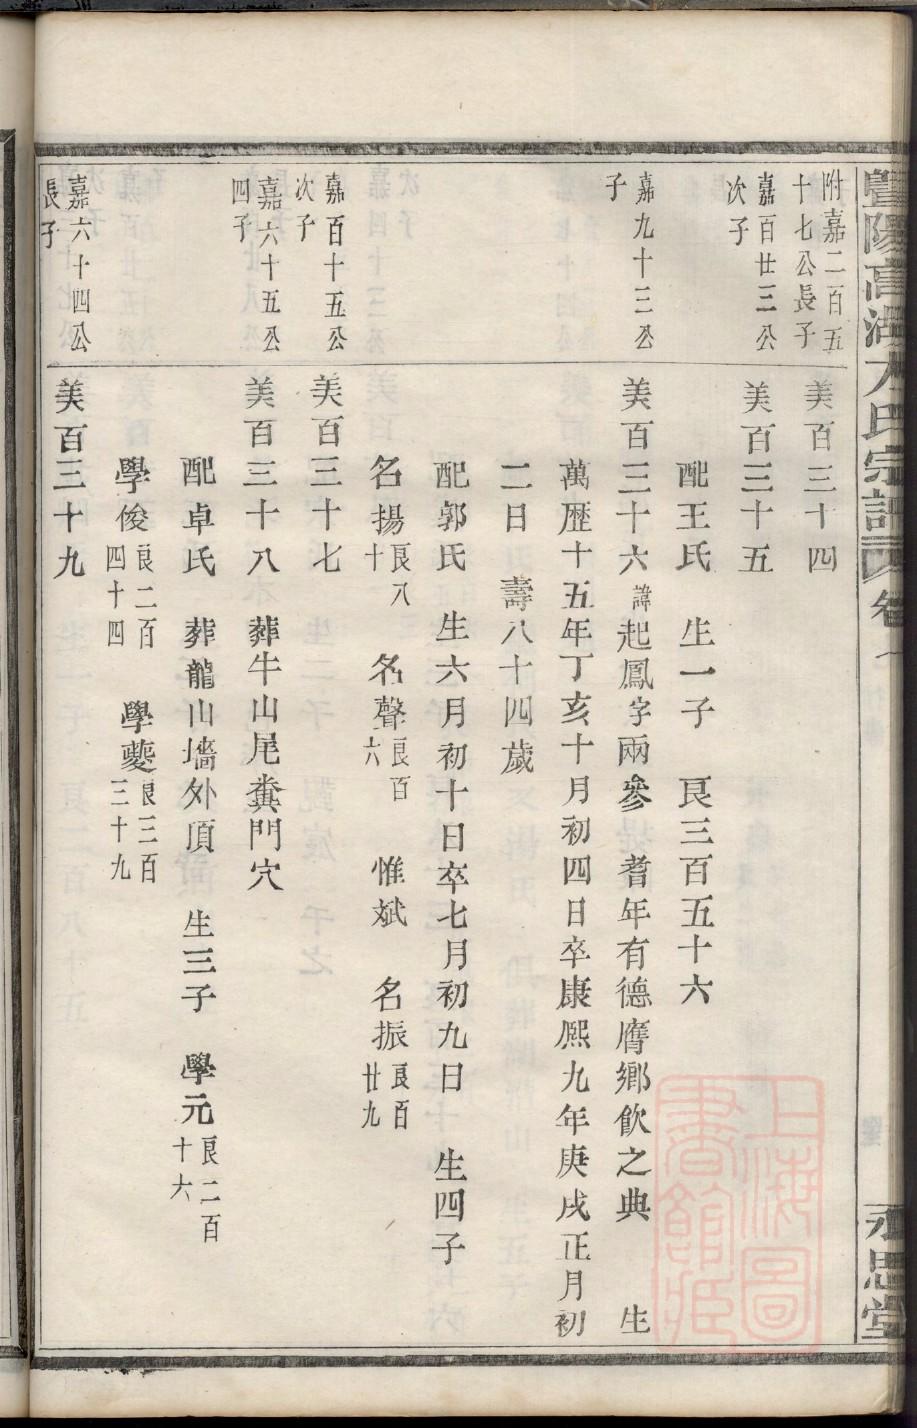 暨陽高湖方氏宗譜
卷
永思堂
附嘉二百五
十七公長子
美百三十四
嘉百廿三公
次子
美百三十五
配王氏 生一子 艮三百五十六
嘉九十三公
子
美百三十六 諱起鳳字兩參 耆年有德膺鄉飲之典 生
萬歷十五年丁亥十月初四日卒康熙九年庚戌正月初
二日 壽八十四歲
配郭氏 生六月初十日卒七月初九日 生四子
名揚 艮八十 名聲 艮百六 惟斌 名振 艮百廿九
嘉百十五公
次子
美百三十七
嘉六十五公
四子
美百三十八 葬牛山尾糞門穴
配卓氏 葬龍山墻外頂 生三子 學元 艮二百十六
學俊 艮二百四十四 學夔 艮三百三十九
嘉六十四公
長子
美百三十九
上海圖書館藏